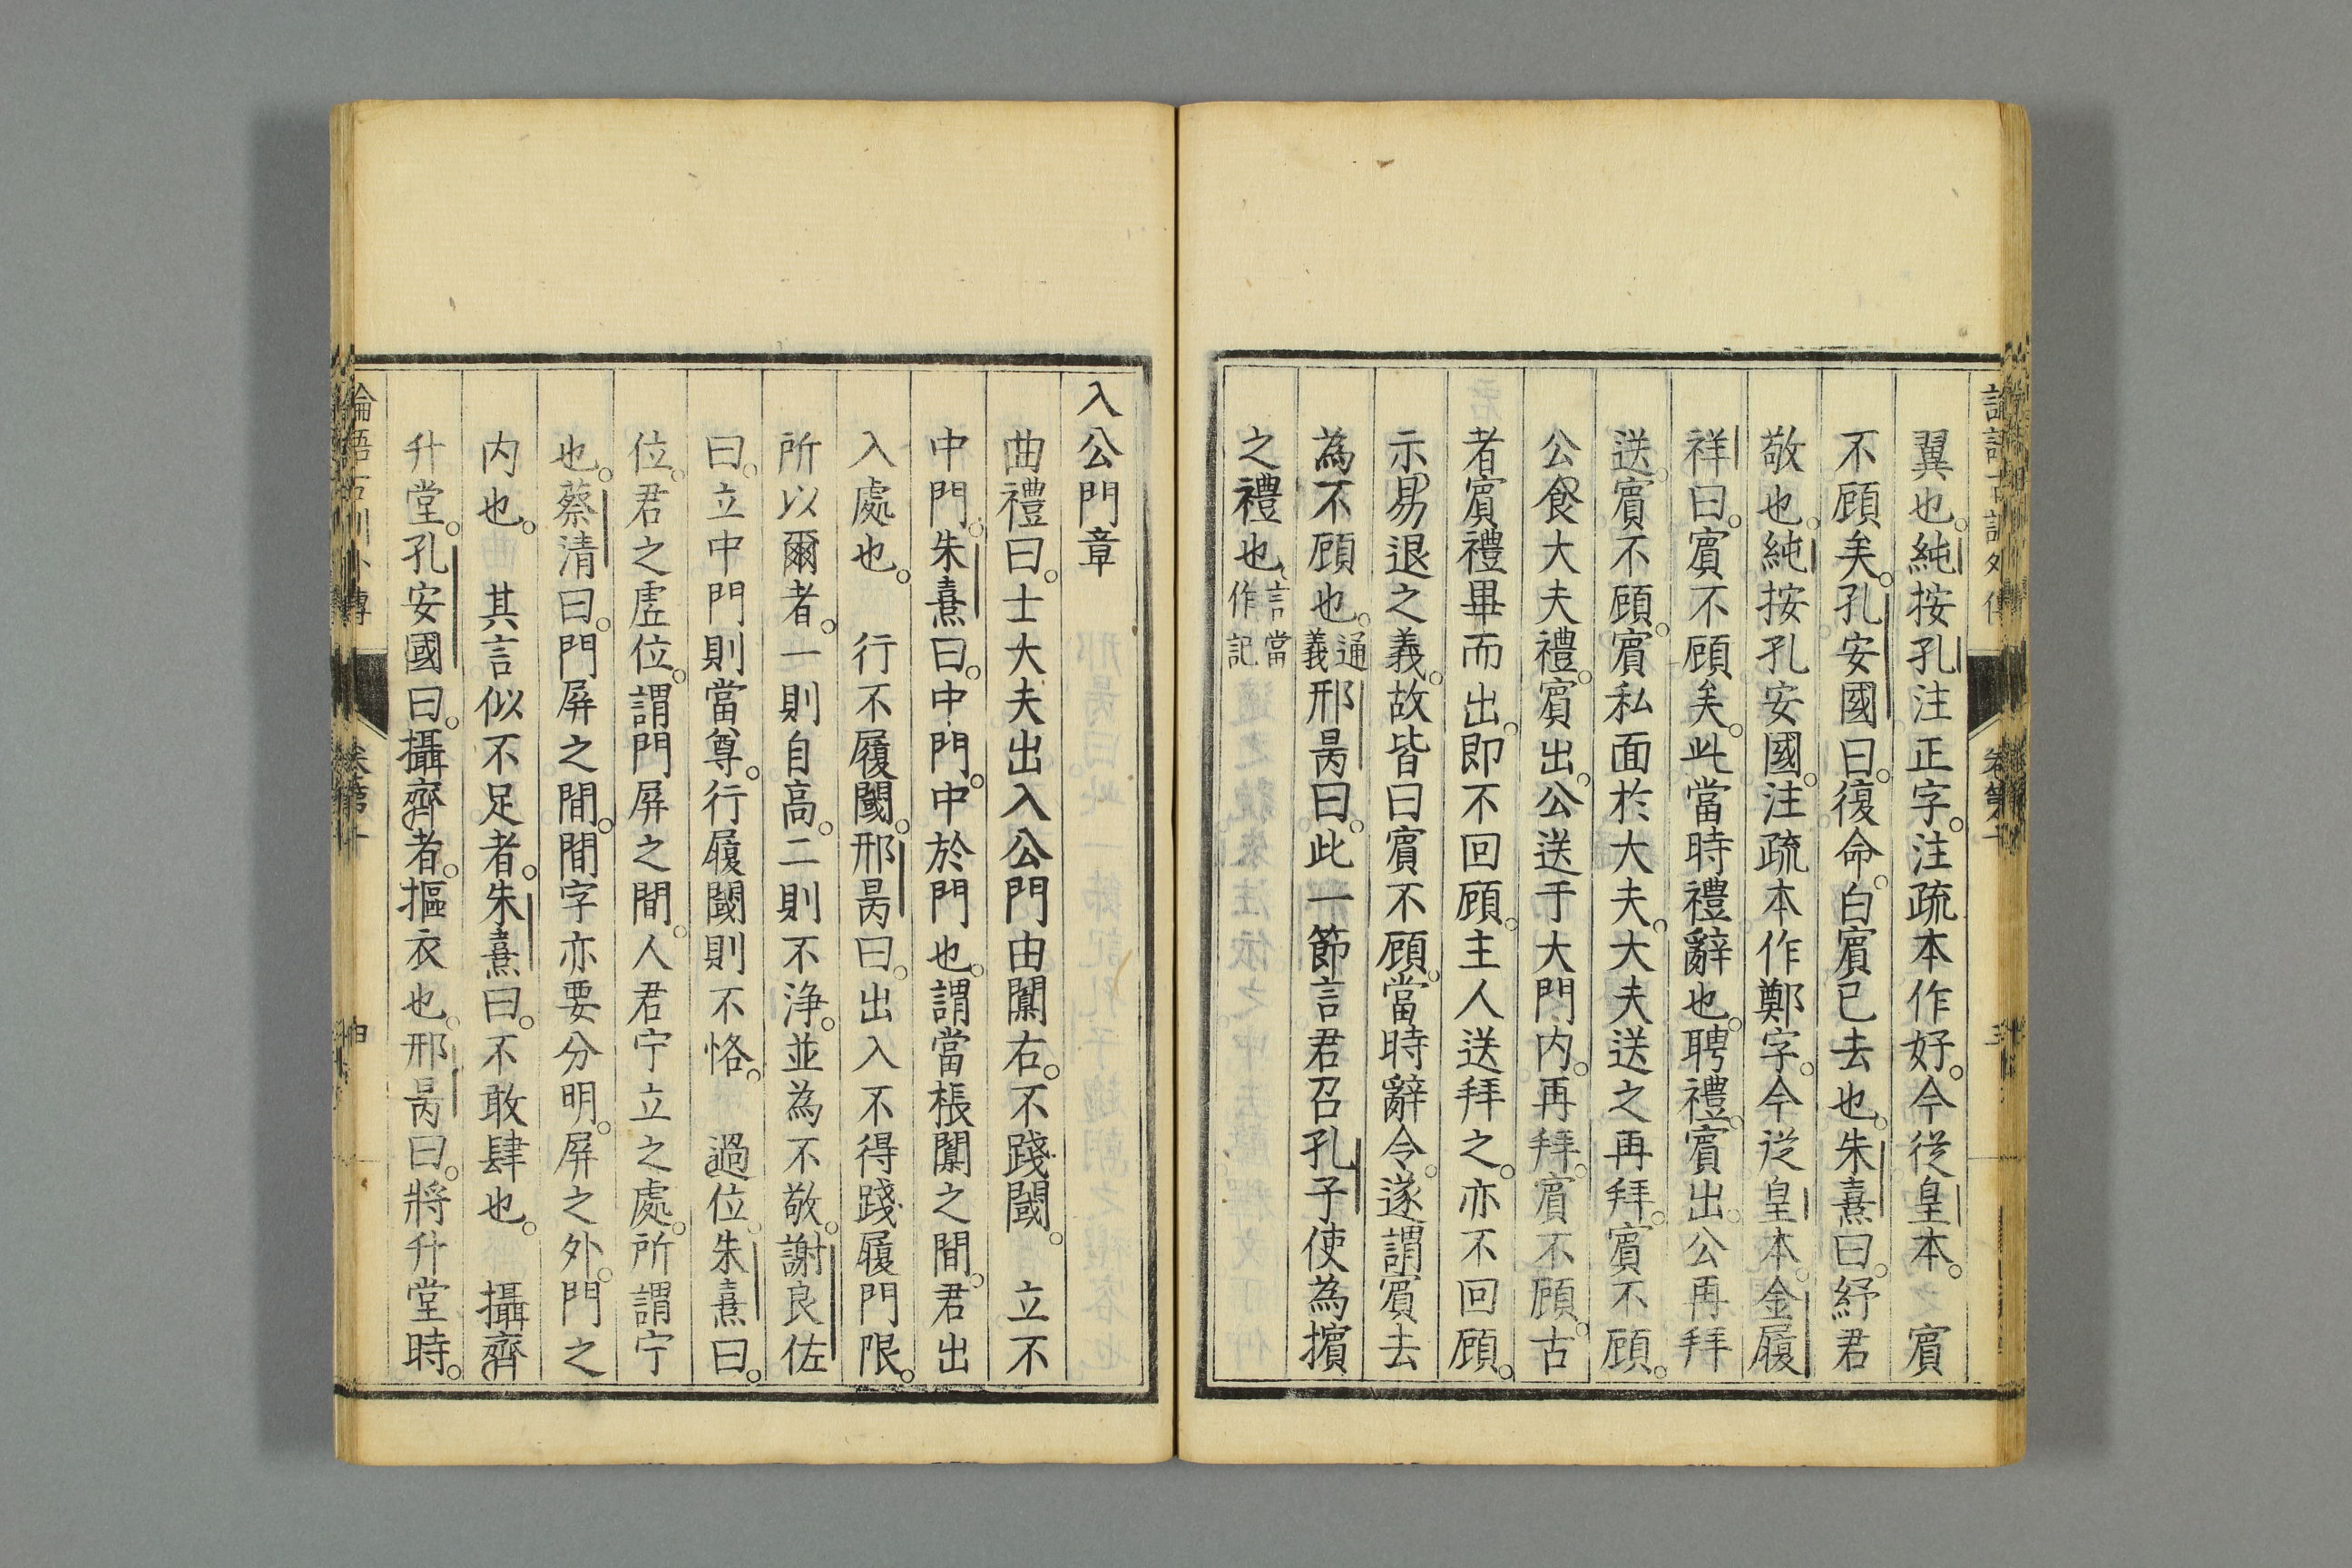 翼也。純按孔注正字。注疏本作好。今從皇本。　賓
不顧矣。孔安國曰。復命。白賓已去也。朱熹曰。紓君
敬也。純按孔安國。注疏本作鄭字。今從皇本。金履
祥曰。賓不顧矣。此當時禮辭也。聘禮。賓出。公再拜
送。賓不顧。賓私面於大夫。大夫送之再拜。賓不顧。
公食大夫禮。賓出。公送于大門内。再拜。賓不顧。古
者賓禮畢而出。即不回顧。主人送拜之。亦不回顧。
示易退之義。故皆曰賓不顧。當時辭令。遂謂賓去
為不顧也。通義邢昺曰。此一節言君召孔子使為擯
之禮也、言當作記
入公門章
曲禮曰。士大夫出入公門由闑右。不踐閾。　立不
中門。朱熹曰。中門。中於門也。謂當棖闑之間。君出
入處也。　行不履閾。邢昺曰。出入不得踐履門限。
所以爾者。一則自高。二則不淨。並為不敬。謝良佐
曰。立中門則當尊。行履閾則不恪。　過位。朱熹曰。
位。君之虛位。謂門屏之間。人君宁立之處。所謂宁
也。蔡清曰。門屏之間。間字亦要分明。屏之外。門之
内也。　其言似不足者。朱熹曰。不敢肆也。　攝齊
升堂。孔安國曰。攝齊者。摳衣也。邢昺曰。將升堂時。
論語古訓外傳　卷第十